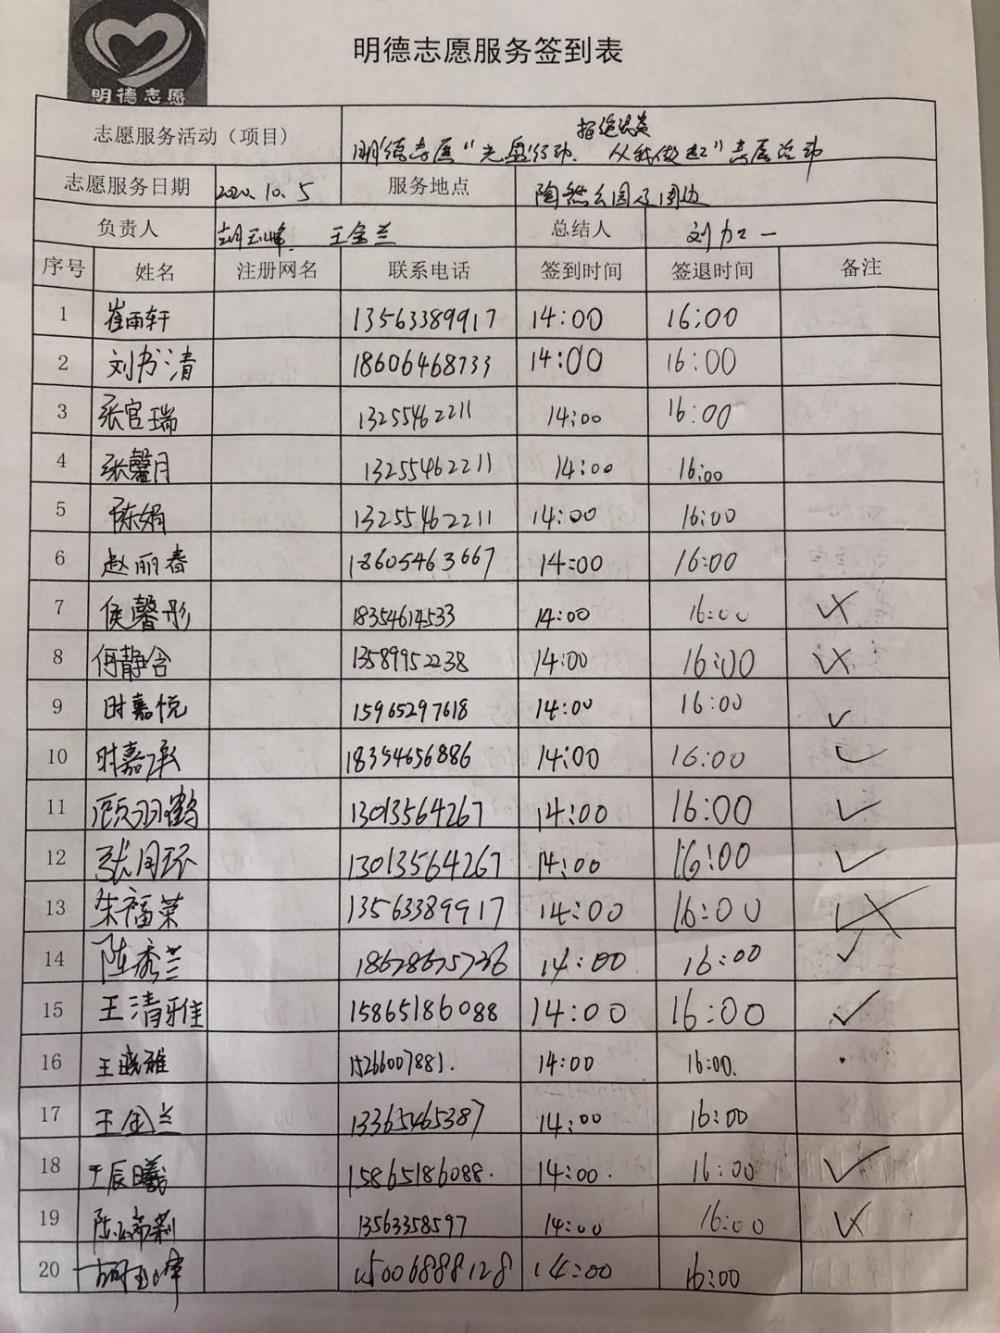 明德志愿
明德志愿服务签到表
志愿服务活动（项目） 拒绝浪费
明德志愿"光盘行动、从我做起"志愿活动
志愿服务日期 2020.10.5 服务地点 陶然公园及周边
负责人 胡玉峰 王金兰 总结人 刘加一
序号 姓名 注册网名 联系电话 签到时间 签退时间 备注
1 崔雨轩 13563389917 14:00 16:00
2 刘书清 18606468733 14:00 16:00
3 张官瑞 13255462211 14:00 16:00
4 张馨月 13255462211 14:00 16:00
5 陈娟 13255462211 14:00 16:00
6 赵丽春 18605463667 14:00 16:00
7 侯馨彤 18354614533 14:00 16:00
8 何静含 13589952238 14:00 16:00
9 时嘉悦 15965297618 14:00 16:00 ✓
10 时嘉承 18354656886 14:00 16:00 ✓
11 顾羽鹤 13013564267 14:00 16:00 ✓
12 张周环 13013564267 14:00 16:00 ✓
13 朱福荣 13563389917 14:00 16:00
14 陈秀兰 18678675736 14:00 16:00 ✓
15 王清雅 15865186088 14:00 16:00 ✓
16 王晓雅 15266007881. 14:00 16:00.
17 王金兰 13365465387 14:00 16:00
18 于辰曦 15865186088. 14:00. 16:00 ✓
19 13563358597 14:00 16:00
20 胡玉峰 15006888128 14:00 16:00